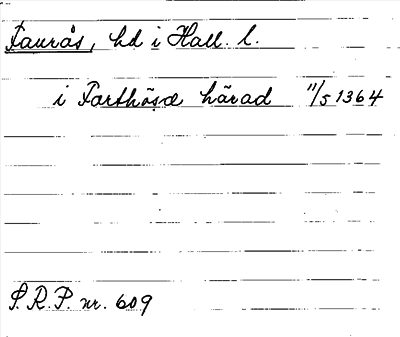 Faurås, hd i Hall. l.
i Forthøsæ härad 11/5 1364
S.R.P. nr. 609